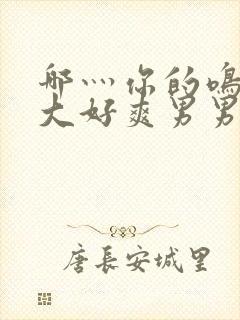 哪灬你的鳴
大好爽男男
唐長安城里